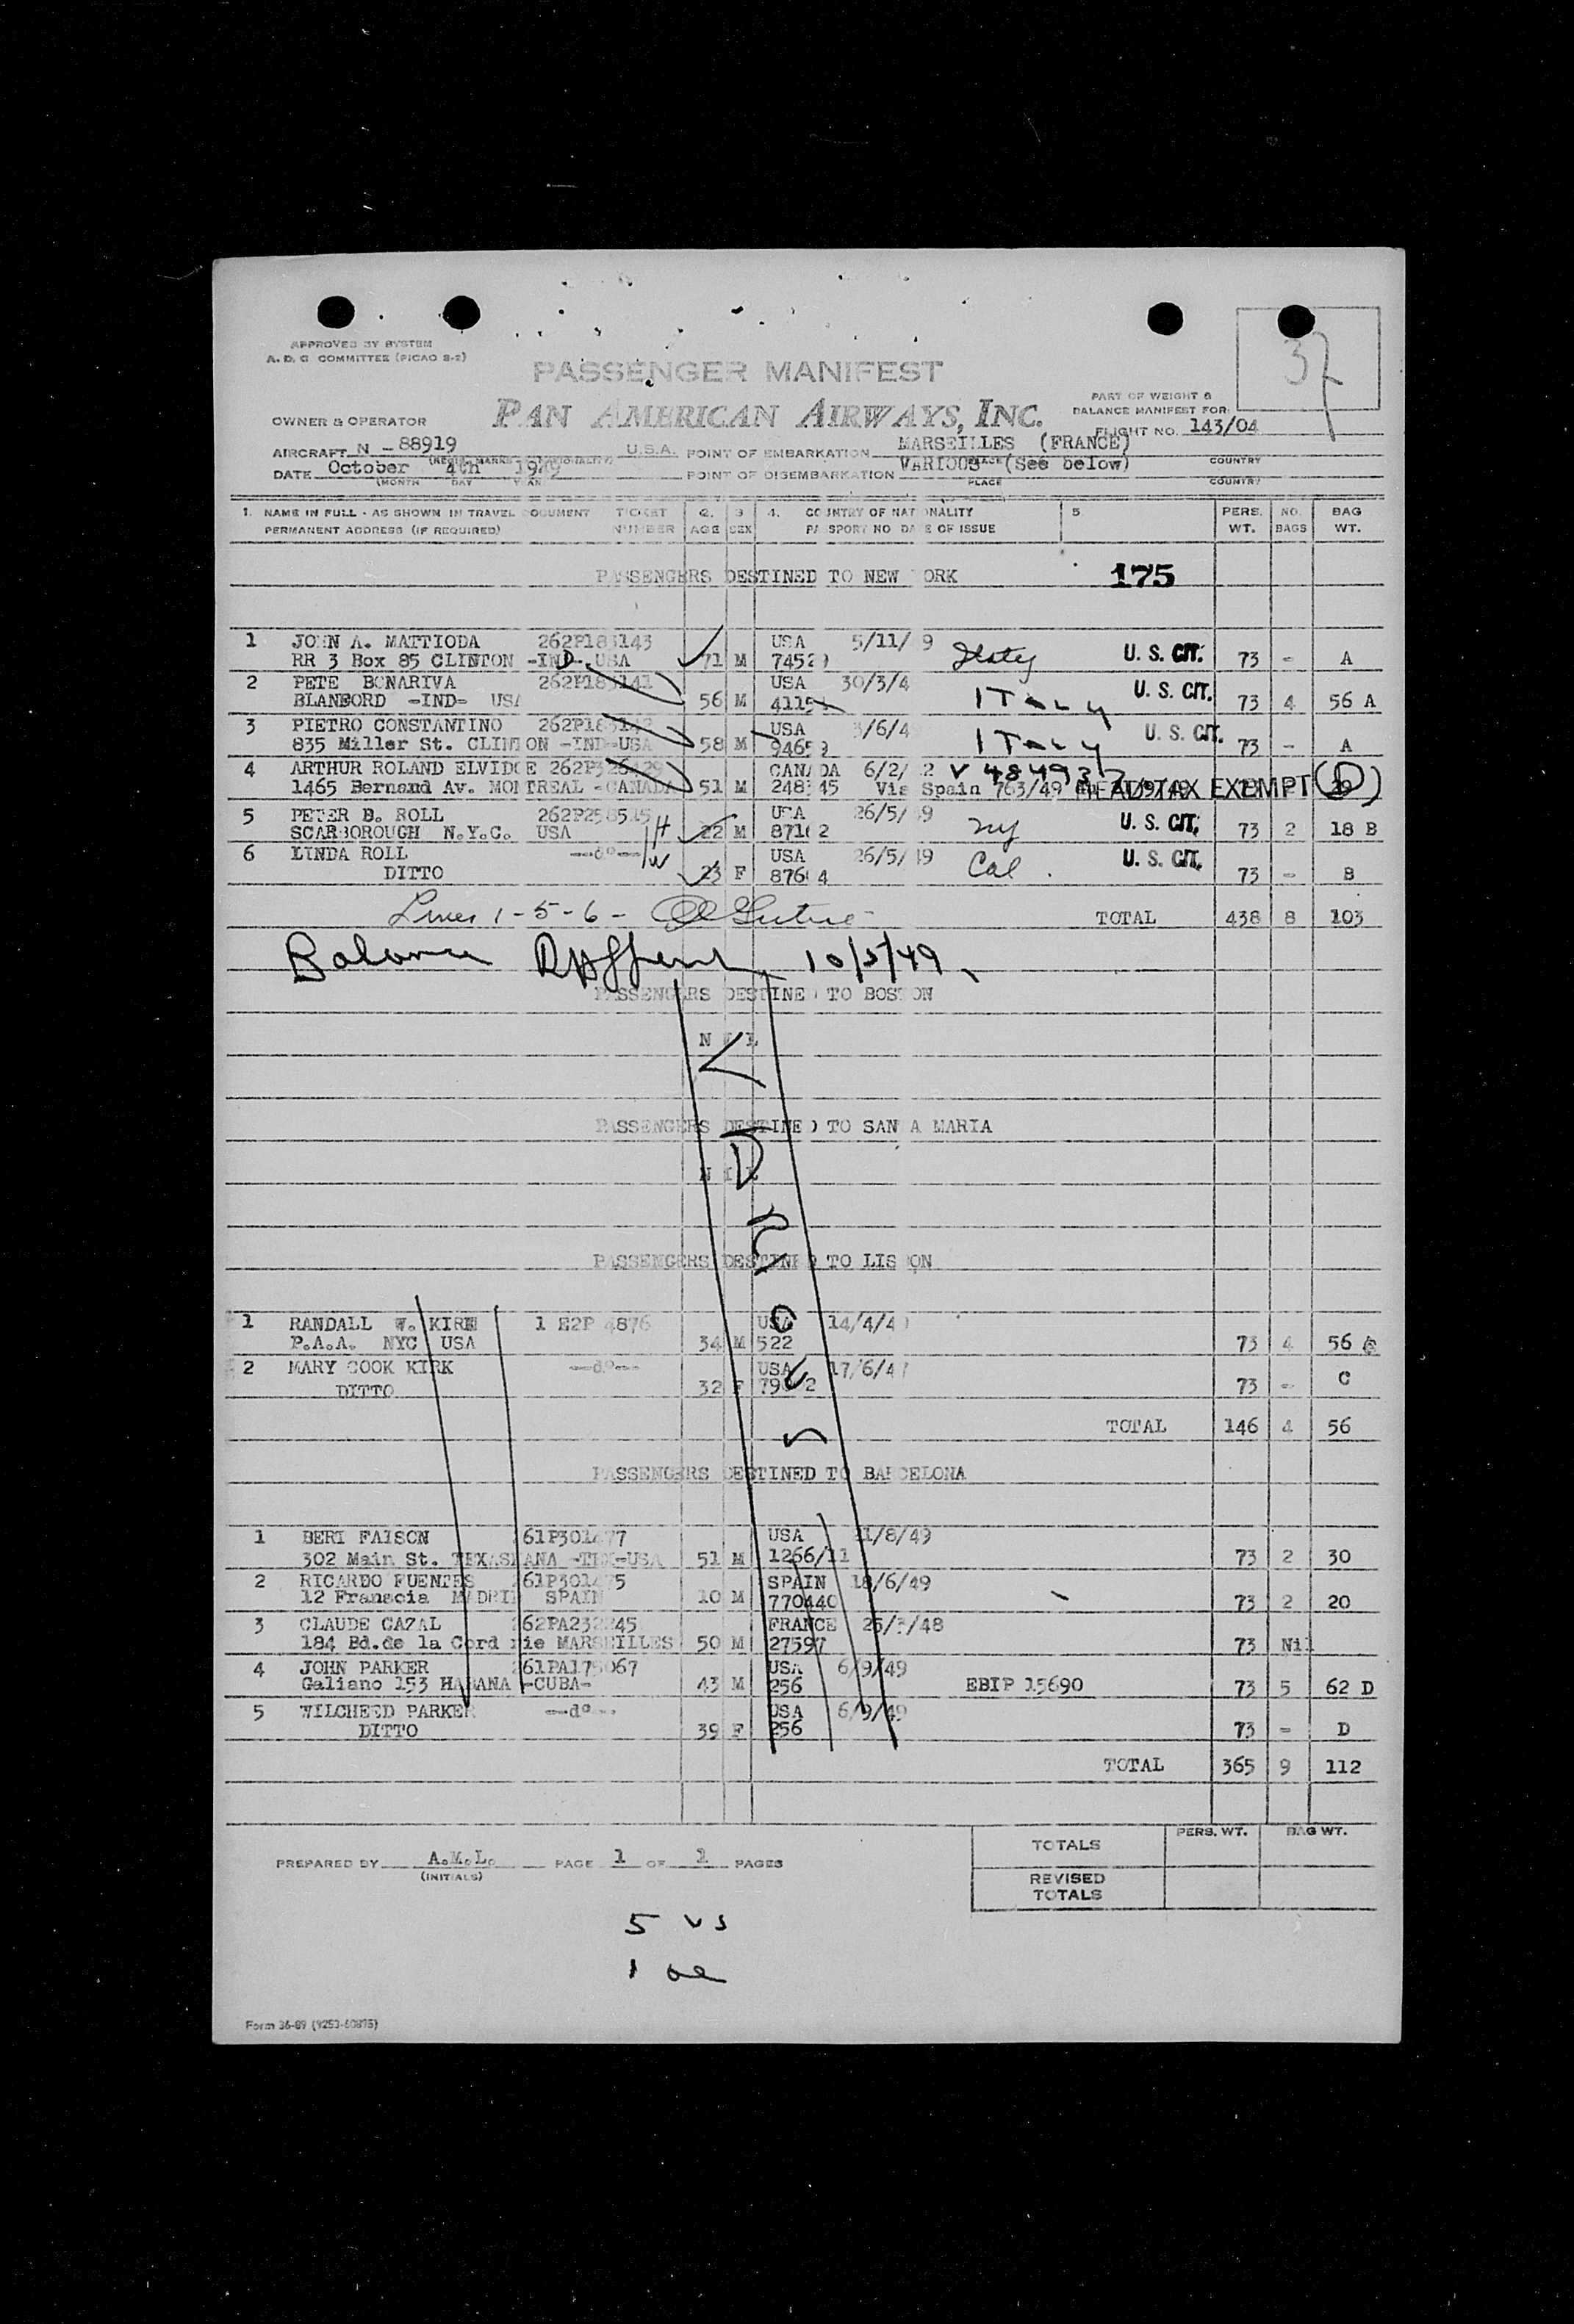 37
APPROVED BY SYSTEM
A. D. C COMMITTEE (PICAO S-2)
PASSENGER MANIFEST
PART OF WEIGHT &
BALANCE MANIFEST FOR:
OWNER & OPERATOR PAN AMERICAN AIRWAYS, INC. FLIGHT NO. 143/04
AIRCRAFT N - 88919 U.S.A. POINT OF EMBARKATION MARSEILLES (FRANCE)
PLACE COUNTRY
DATE October 4th 1949 POINT OF DISEMBARKATION VARIOUS (See below)
(MONTH DAY YEAR PLACE COUNTRY
1. NAME IN FULL - AS SHOWN IN TRAVEL DOCUMENT TICKET 2. 3 4. COUNTRY OF NATIONALITY 5 PERS. NO. BAG
PERMANENT ADDRESS (IF REQUIRED) NUMBER AGE SEX PASSPORT NO DATE OF ISSUE WT. BAGS WT.
PASSENGERS DESTINED TO NEW ORK 175
1 JOHN A. MATTIODA 262P183143 USA 5/11/ 9 Italy U. S. CIT.
RR 3 Box 85 CLINTON -IND- USA 71 M 7452 73 - A
2 PETE BONARIVA 262P183141 USA 30/3/4 U. S. CIT.
BLANFORD -IND- USA 56 M 4115 ITaly 73 4 56 A
3 PIETRO CONSTANTINO USA 3/6/4 U. S. CIT.
835 Miller St. CLINTON -IND-USA 58 M 9465 ITaly 73 - A
4 ARTHUR ROLAND ELVIDGE CANADA 6/2/ 2 V 484937
1465 Bernand Av. MONTREAL -CANADA 51 M 248 45 Via Spain 763/49 HEAD TAX EXEMPT (D)
5 PETER B. ROLL 262P258515 H USA 26/5/ 9 NY U. S. CIT.
SCARBOROUGH N.Y.C. USA 22 M 871 2 73 2 18 B
6 LINDA ROLL --do-- W USA 26/5/ 49 Cal. U. S. CIT.
DITTO 23 F 876 4 73 - B
Lines 1-5-6- TOTAL 438 8 103
Balance 10/5/49
PASSENGERS DESTINED TO BOSTON
N I L
PASSENGERS DESTINED TO SAN A MARIA
N I L
PASSENGERS DESTINED TO LIS ON
1 RANDALL W. KIRK 1 E2P 4876 USA 14/4/4
P.A.A. NYC USA 34 M 522 73 4 56 C
2 MARY COOK KIRK --do-- USA 17/6/4
DITTO 32 F 73 - C
TOTAL 146 4 56
PASSENGERS DESTINED TO BARCELONA
1 BERT FAISON 61P301 77 USA 1/8/49
302 Main St. TEXASKANA -TEX-USA 51 M 1266/11 73 2 30
2 RICARDO FUENTES 61P301 75 SPAIN 18/6/49
12 Franscia MADRID SPAIN 10 M 770440 73 2 20
3 CLAUDE CAZAL 262PA232245 FRANCE 25/3/48
184 Bd.de la Cord rie MARSEILLES 50 M 27597 73 Nil
4 JOHN PARKER 261PA175067 USA 6/9/49
Galiano 153 HABANA -CUBA- 43 M 256 EBIP 15690 73 5 62 D
5 WILCHEED PARKER --do-- USA 6/9/49
DITTO 39 F 256 73 - D
TOTAL 365 9 112
PERS. WT. BAG WT.
TOTALS
PREPARED BY A.M.L. PAGE 1 OF 1 PAGES
(INITIALS)
REVISED
TOTALS
5 US
1
Form 36-89 (9253-60895)